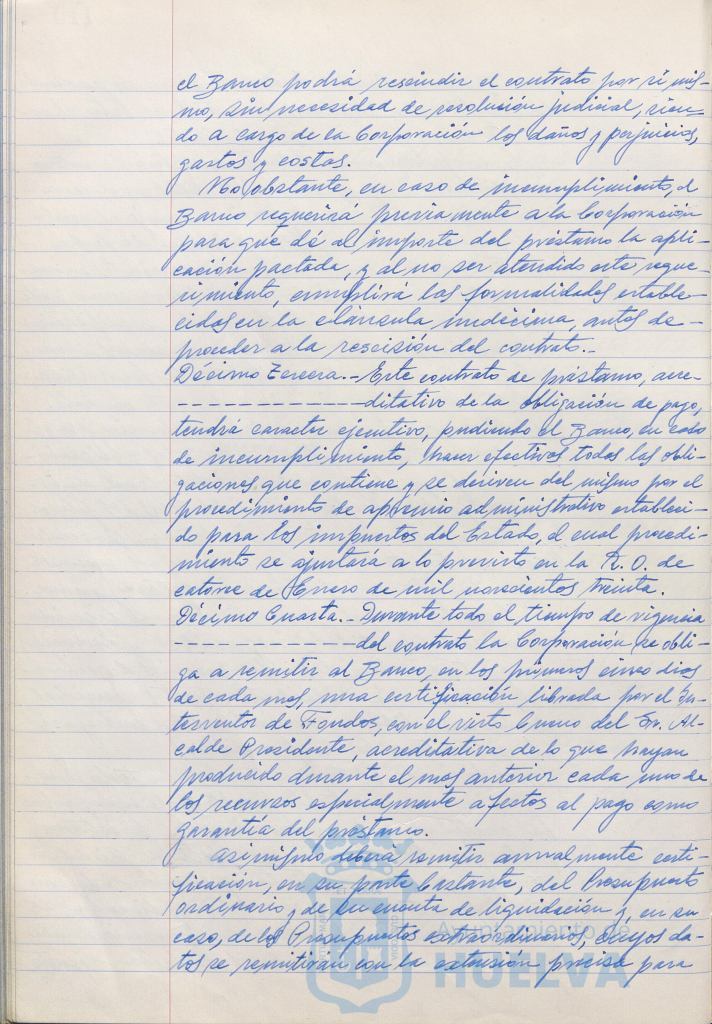 el Banco podrá rescindir el contrato por si mis-
mo, sin necesidad de resolución judicial, sien-
do a cargo de la Corporación los daños y perjuicios,
gastos y costas.
No obstante, en caso de incumplimiento, el
Banco requerirá previamente a la Corporación
para que dé al importe del préstamo la apli-
cación pactada, y al no ser atendido este reque-
rimiento, cumplirá las formalidades estable-
cidas en la cláusula undécima, antes de
proceder a la rescisión del contrato.-
Décimo Tercera.- Este contrato de préstamo, acre-
-------------ditativo de la obligación de pago,
tendrá caracter ejecutivo, pudiendo el Banco, en caso
de incumplimiento, hacer efectivas todas las obli-
gaciones que contiene y se deriven del mismo por el
procedimiento de apremio administrativo estableci-
do para los impuestos del Estado, el cual procedi-
miento se ajustará a lo previsto en la R. O. de
catorce de Enero de mil novecientos treinta.
Décimo Cuarta.- Durante todo el tiempo de vigencia
-------------del contrato la Corporación se obli-
ga a remitir al Banco, en los primeros cinco dias
de cada mes, una certificación librada por el In-
terventor de Fondos, con el visto bueno del Sr. Al-
calde Presidente, acreditativa de lo que hayan
producido durante el mes anterior cada uno de
los recursos especialmente afectos al pago como
garantía del préstamo.
Asimismo deberá remitir anualmente certi-
ficación, en su parte bastante, del Presupuesto
ordinario y de su cuenta de liquidación y, en su
caso, de los Presupuestos extraordinarios, cuyos da-
tos se remitirán con la extensión precisa para
Ayuntamiento de
HUELVA